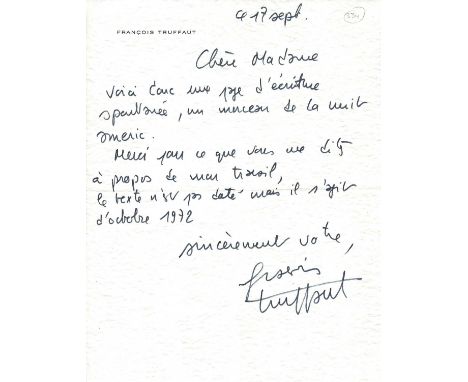 ce 17 sept.
234
FRANÇOIS TRUFFAUT
Chère Madame
Voici donc une page d'écriture
spontanée, un morceau de la nuit
americ.
Merci pour ce que vous me dites
à propos de mon travail,
le texte n'est pas daté mais il s'agit
d'octobre 1972
sincèrement votre,
françois
truffaut